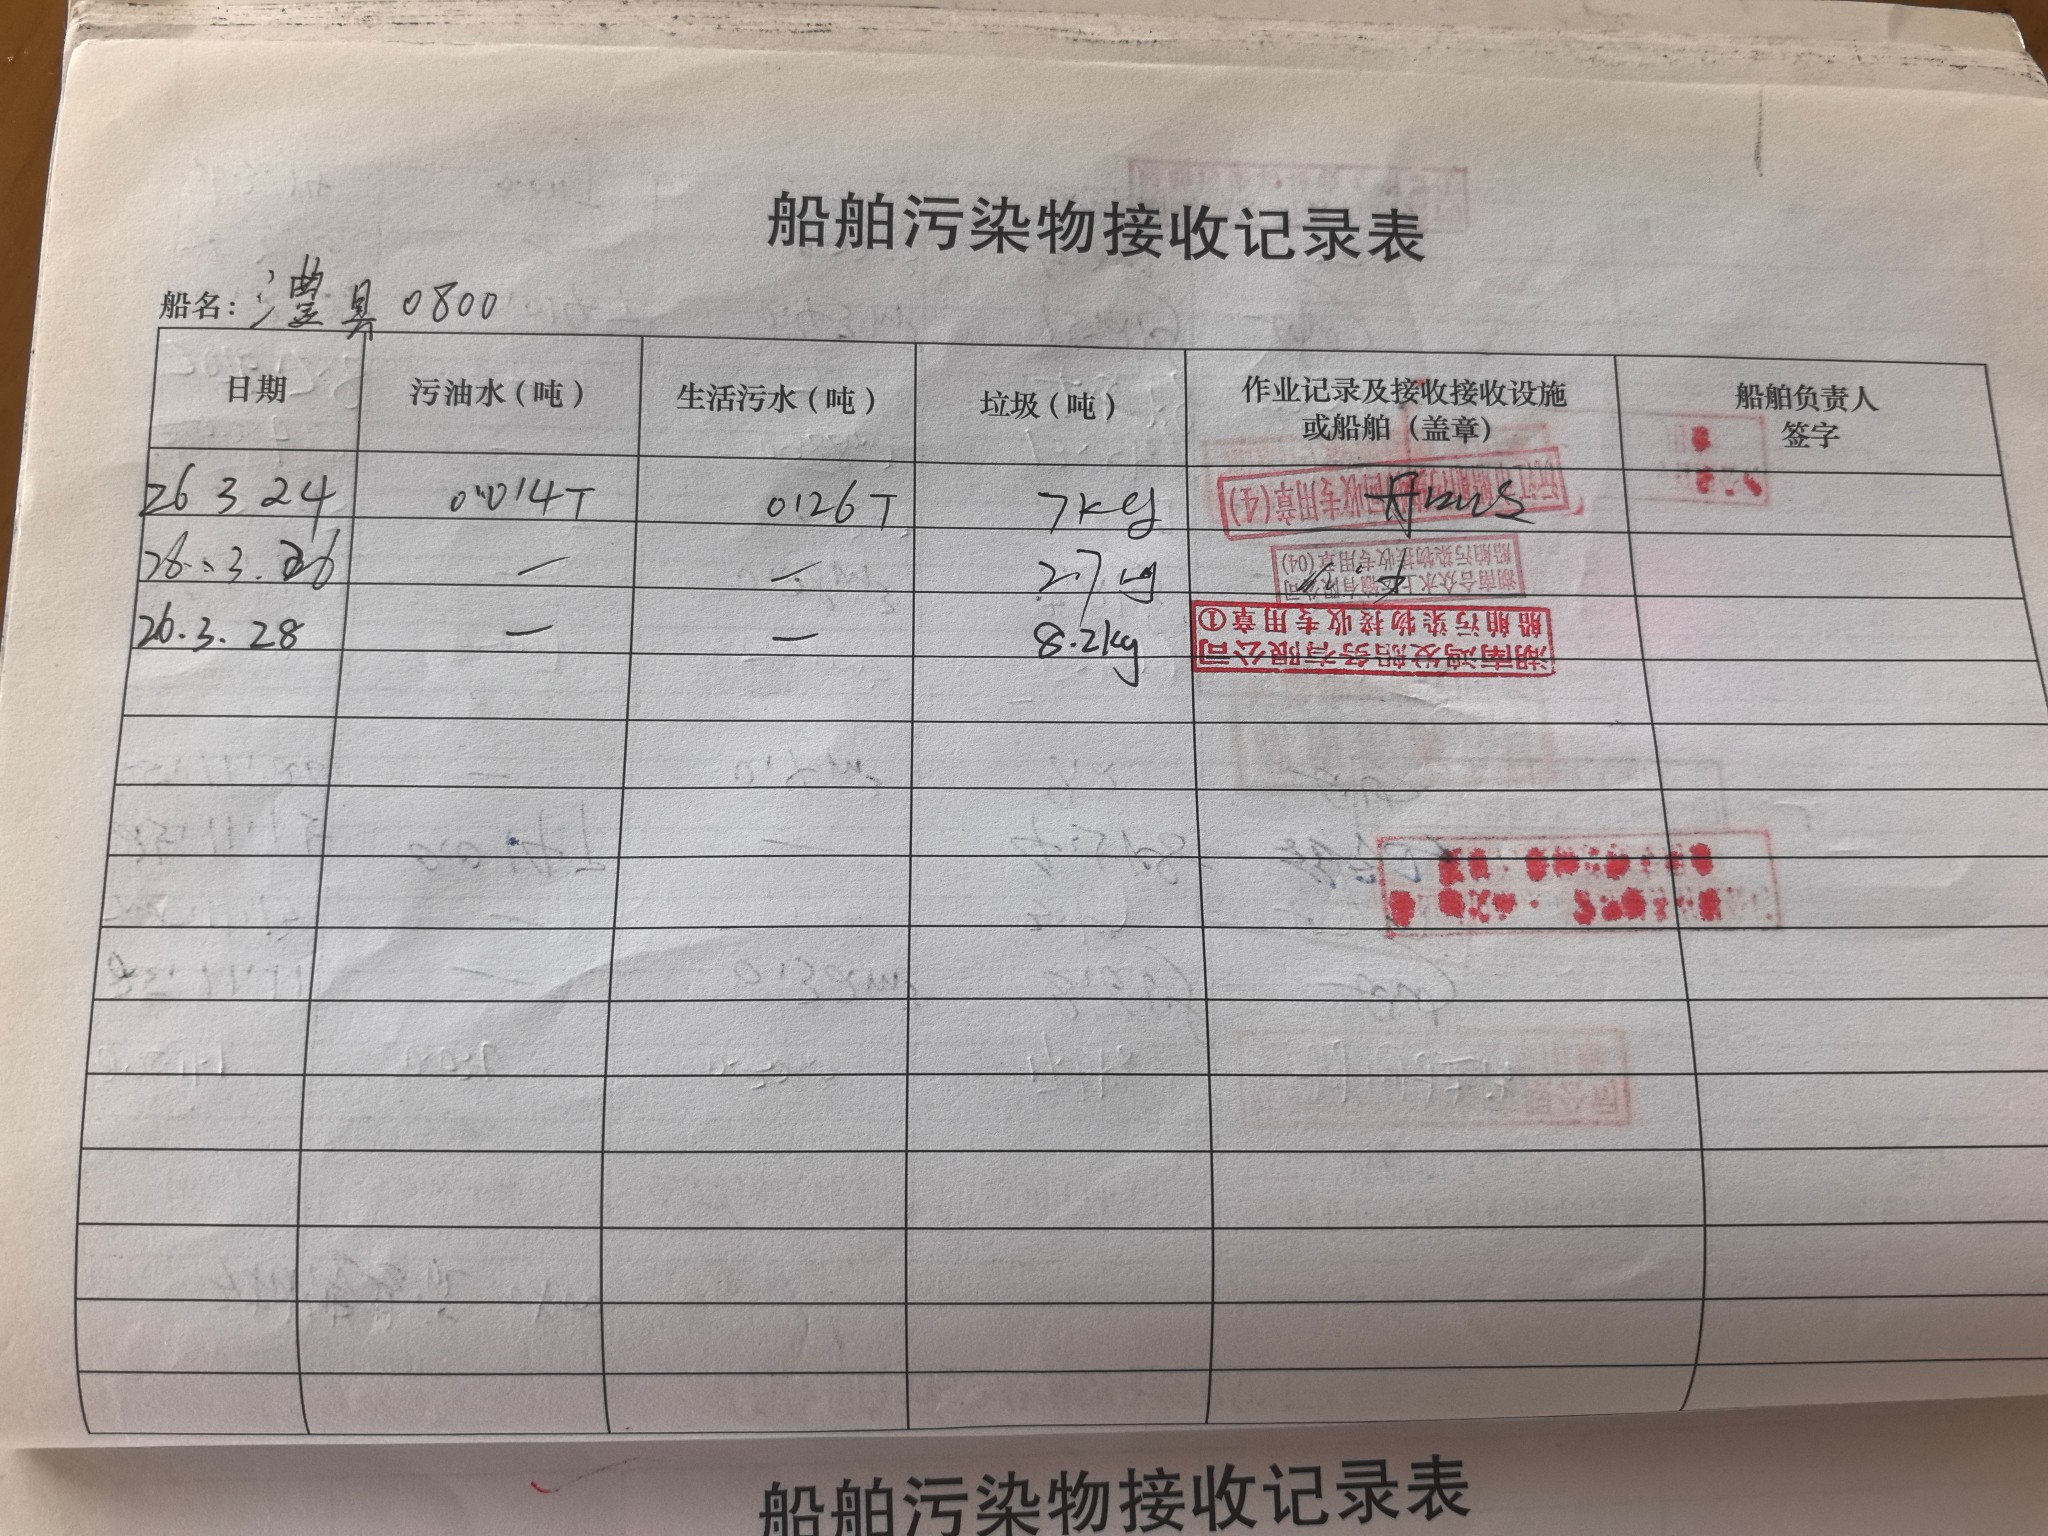 船舶污染物接收记录表
船名: 澧县 0800
日期 污油水(吨) 生活污水(吨) 垃圾(吨) 作业记录及接收接收设施或船舶(盖章) 船舶负责人签字
26 3 24 0.014T 0.126T 7kg 回收专用章(4)
26.3.26 — — 2.7kg 湖南合众水上运输有限公司 船舶污染物接收专用章(04)
26.3.28 — — 8.2kg 湖南鸿发船务有限公司 船舶污染物接收专用章①
船舶污染物接收记录表